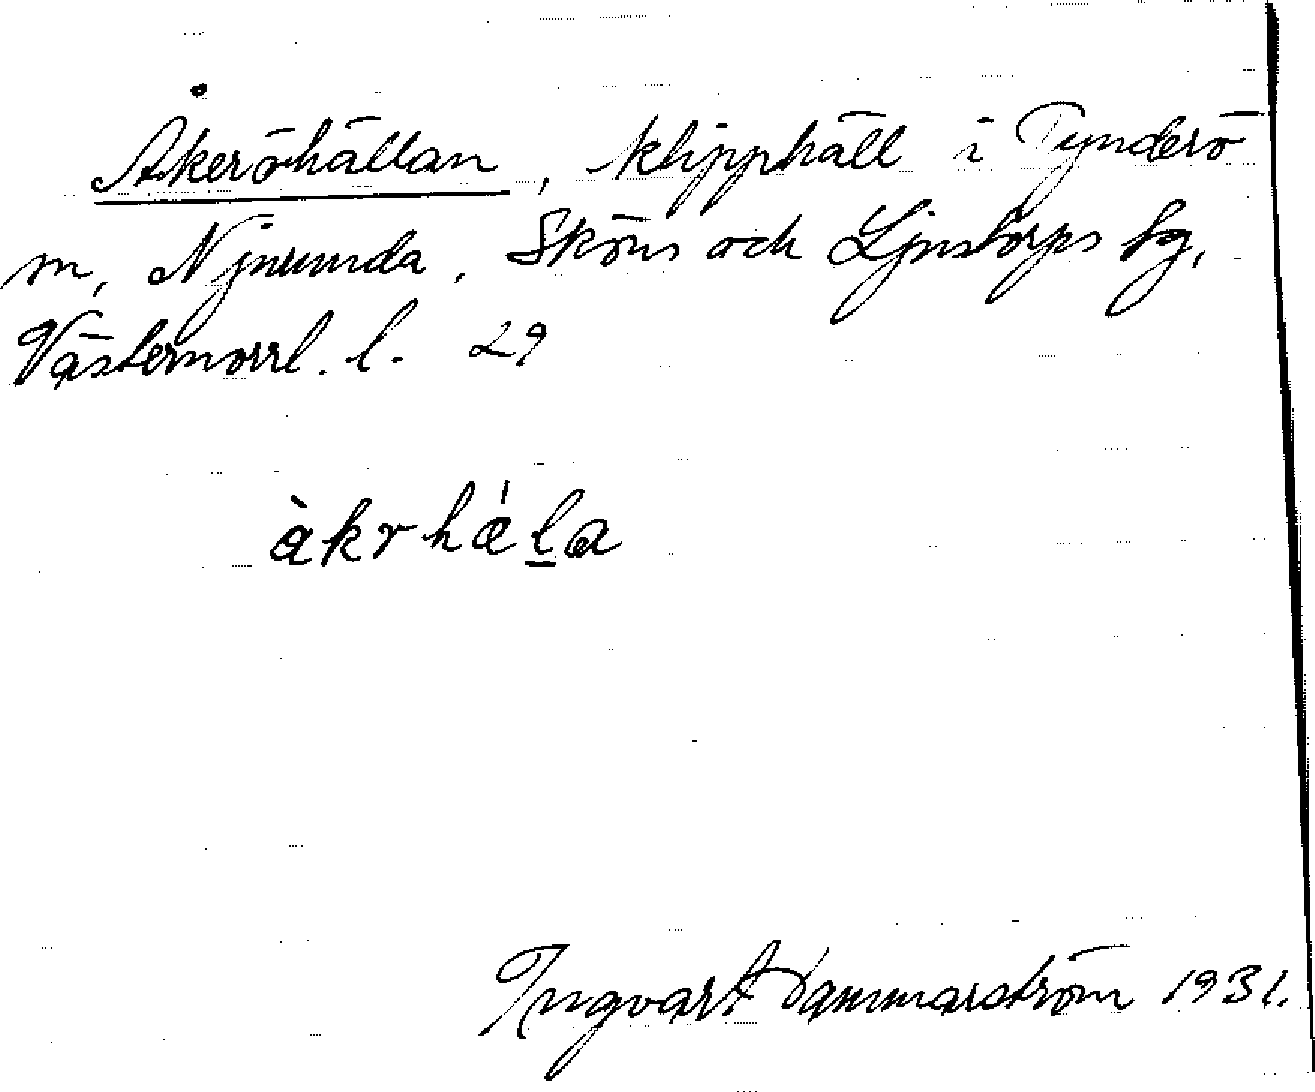 Åkeröhällan, klipphäll i Tynderö
m, Njurunda, Sköns och Ljustorps tg,
Västernorrl. l. 29
àkrhǽla
Ingvar Hammarström 1931.